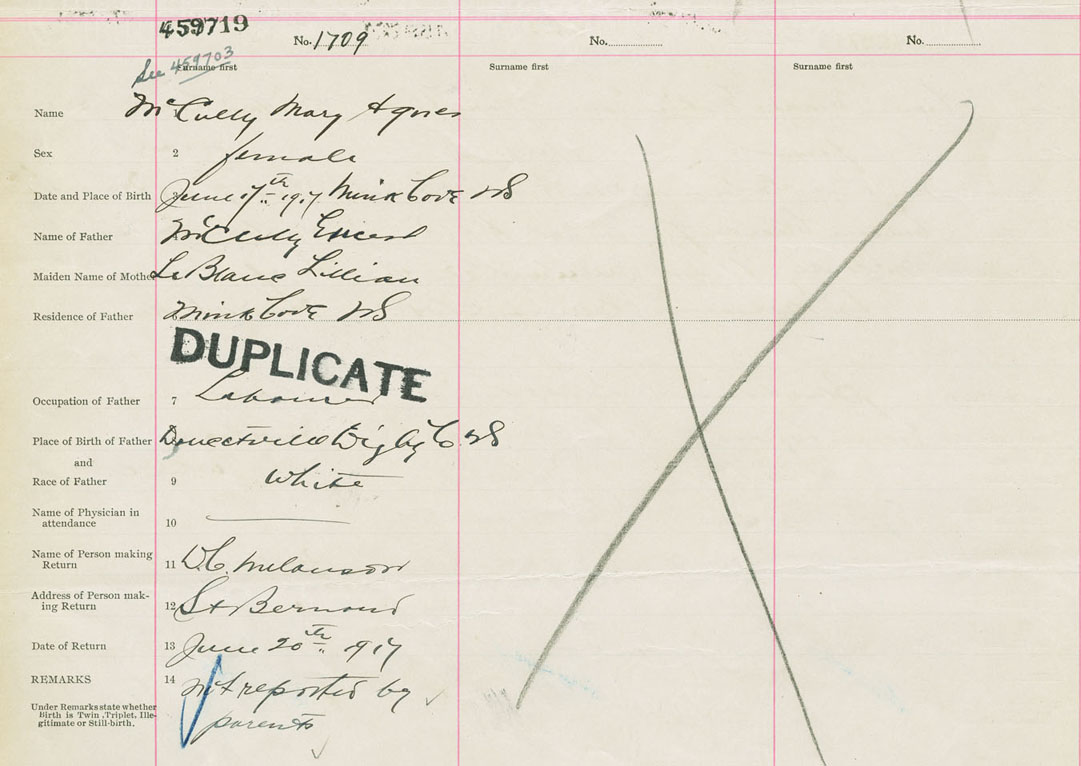 459719
No. 1709 No. No.
See 459703
Surname first Surname first Surname first
Name 1 McCully Mary Agnes
Sex 2 female
Date and Place of Birth 3 June 17th 1917 Mink Cove NS
Name of Father McCully Ernest
Maiden Name of Mother LeBlanc Lillian
Residence of Father Mink Cove NS
DUPLICATE
Occupation of Father 7 Labourer
Place of Birth of Father Digby Co. NS
and
Race of Father 9 White
Name of Physician in
attendance 10
Name of Person making
Return 11 D.C. Melanson
Address of Person mak-
ing Return 12 St Bernard
Date of Return 13 June 20th 1917
REMARKS 14 Not reported by
parents
Under Remarks state whether
Birth is Twin, Triplet, Ille-
gitimate or Still-birth.